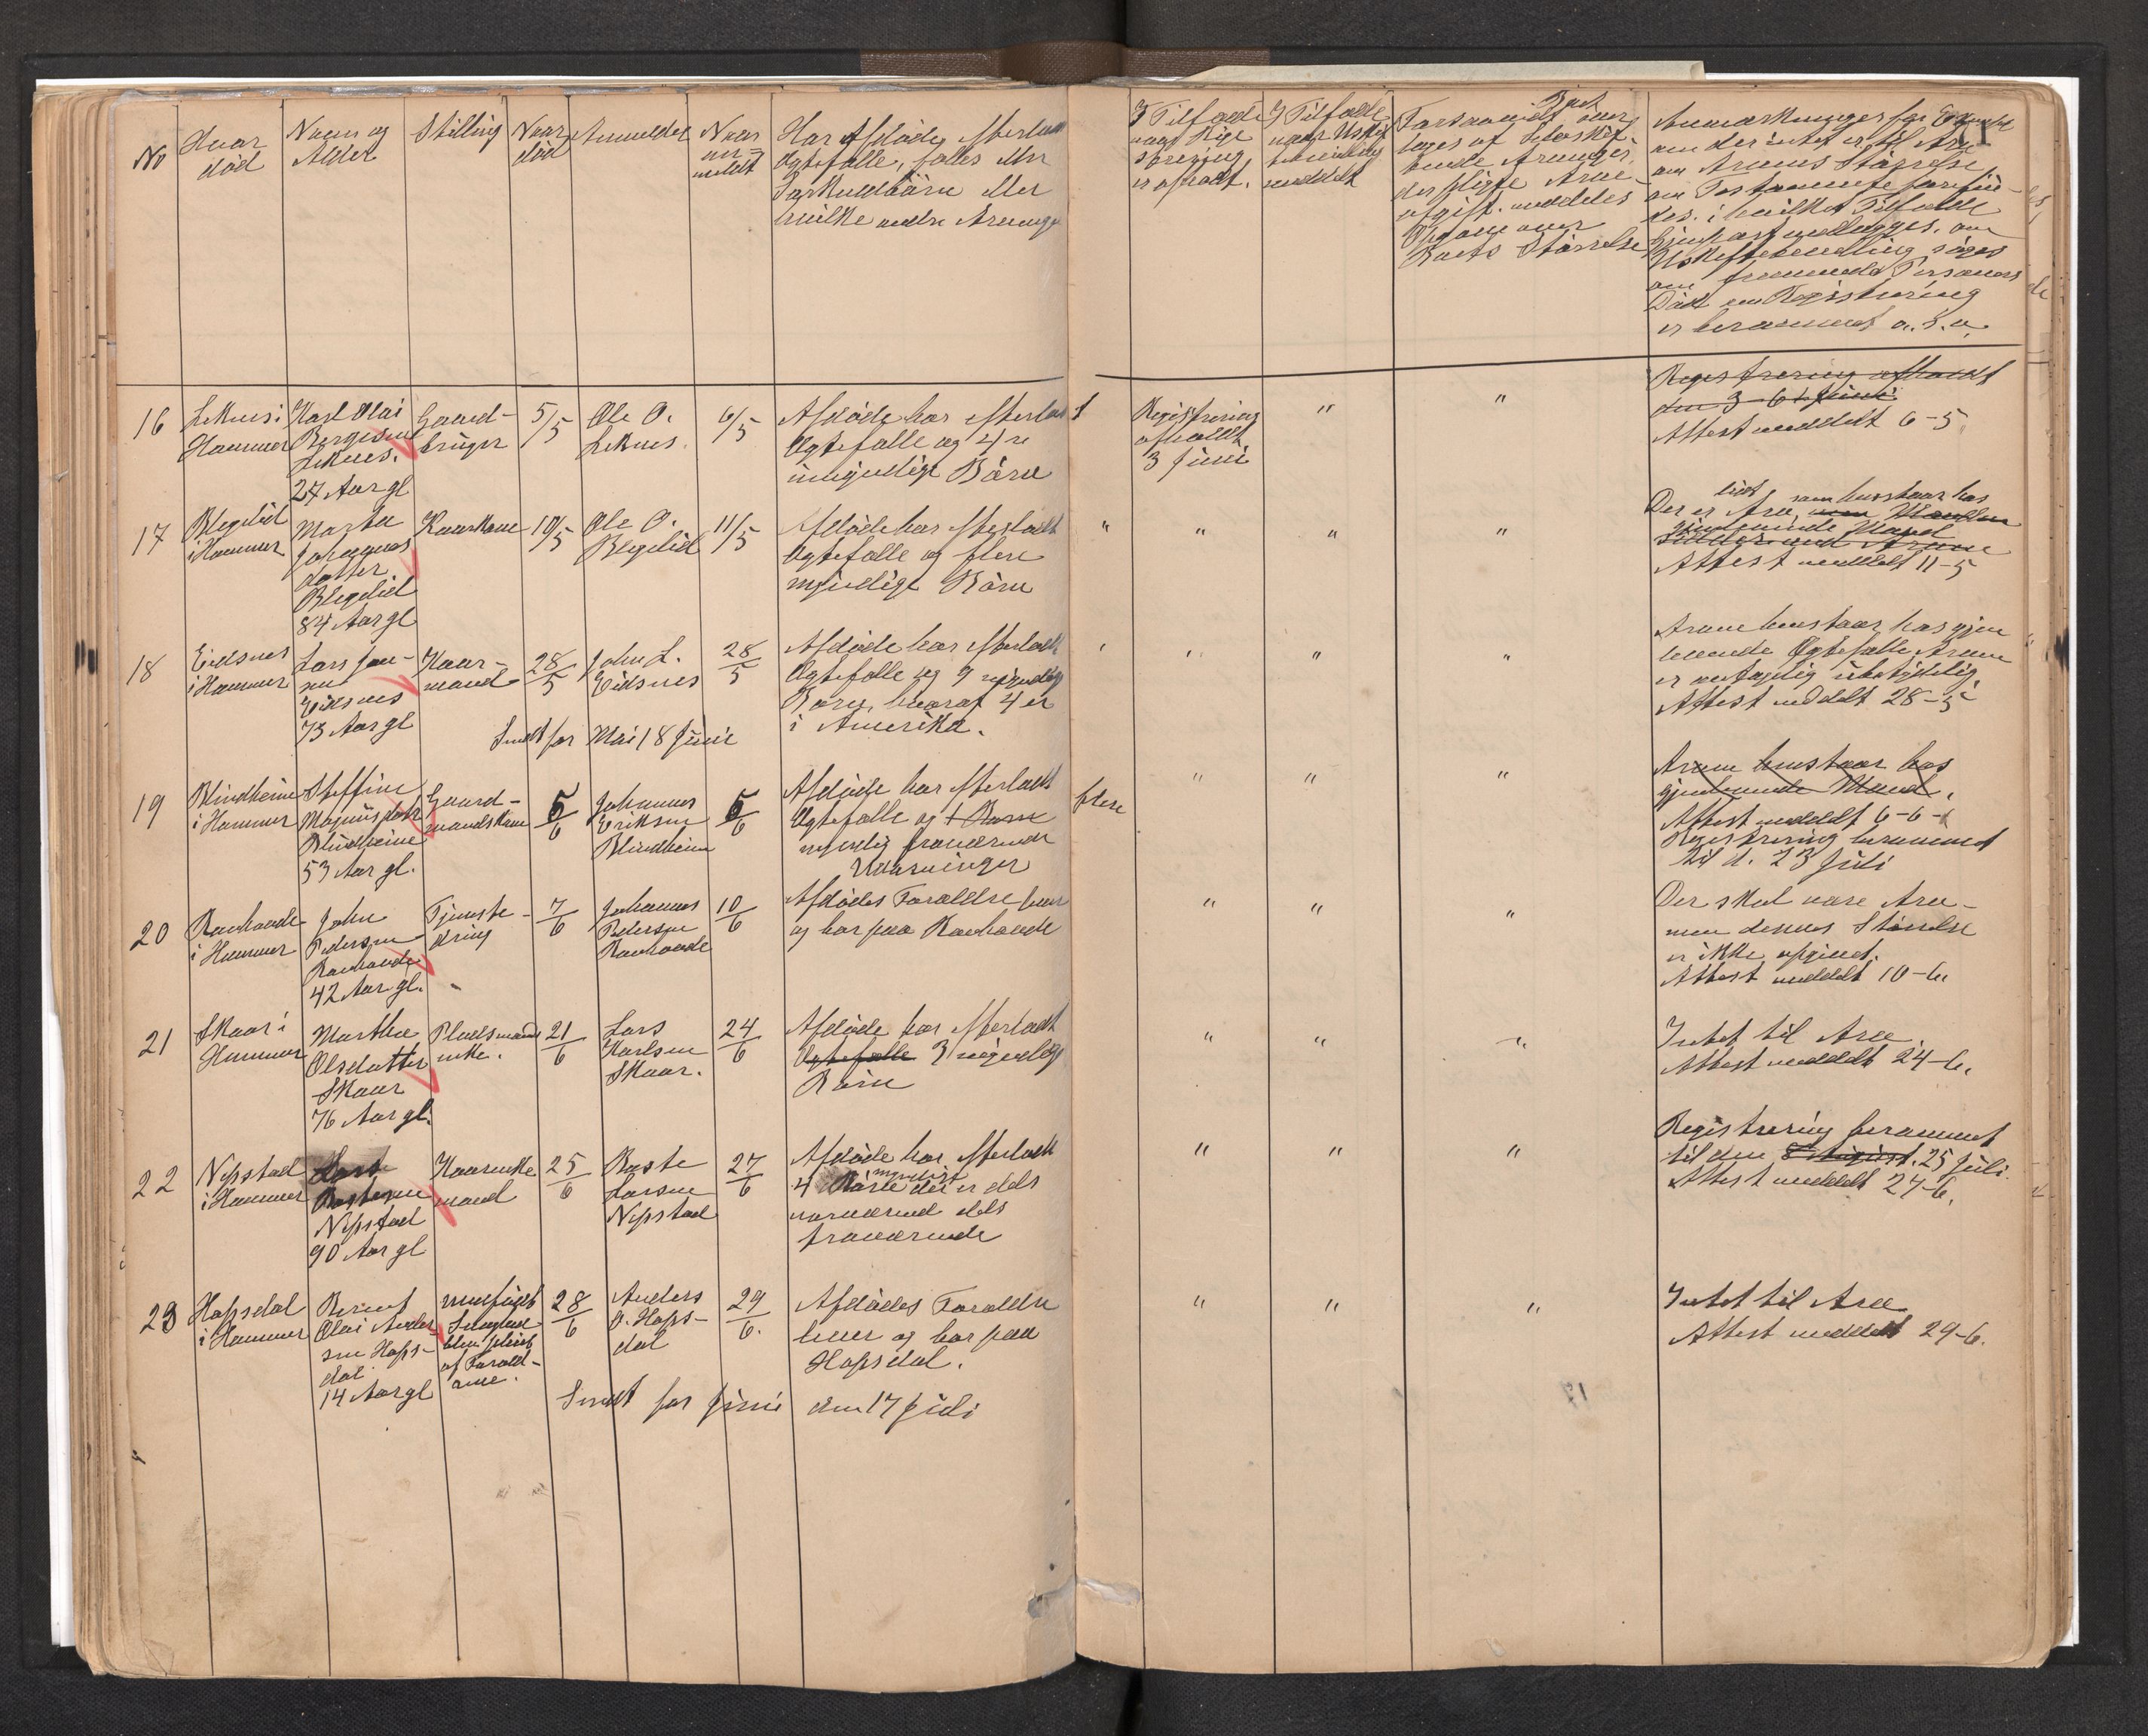 No
Hvor
død
Navn og
Alder
Stilling
Naar
død
Anmelder
Naar
an-
meldt
Har Afdøde efterladt
Ægtefælle, fælles eller
Særkuldbörn eller
hvilke andre Arvinger
I Tilfælde
naar Rige
strering
er afholdt.
I Tilfælde
naar Uskif
tebevilling
meddelt
Forsaavidt Boet over
tages af selvskif
tende Arvinger
der pligte Arve
afgift meddeles
Opgave over
Boets Størrelse
Anmærkninger for Exempel
om der intet er til Arv
om Arvens Størrelse
om Testamente forefin-
des. i hvilket Tilfælde
Gjenpart vedlægges, om
Uskiftebevilling søges
om fremmede Personers
Död om Registrering
er berammet o. s. v.
16
Leknes i
Hammer
Karl Olai
Bergesen
Leknes.
27 Aar gl
Gaard-
bruger
5/5
Ole O.
Leknes.
6/5
Afdöde har efterladt
Ægtefælle og 4re
umyndige Börn
Registrering
afholdt
3 Juni
"
"
Registrering afholdt
den 3-6 i Juni
Attest meddelt 6-5
17
Blegelid
i Hammer
Marthe
Johannes
datter
Blegelid
84 Aar gl
Kaarkone
10/5
Ole O.
Blegelid
11/5
Afdöde har efterladt
Ægtefælle og flere
myndige Börn
"
"
"
"
lidt som henstaar hos
Der er Arv,
gjenlevende Mand
Attest meddelt 11-5
18
Eidsnes
i Hammer
Lars Jon-
sen
Eidsnes
73 Aar gl
Kaar-
mand
28/5
John L.
Eidsnes
28/5
Afdöde har efterladt
Ægtefælle og 9 myndige
Börn, hvoraf 4 er
i Amerika.
"
"
"
Arven henstaar hos gjen
levende Ægtefælle Arven
er antagelig ubetydelig.
Attest meddelt 28-5
Sendt for Mai 18 Juni
19
Blindheim
i Hammer
Steffine
Magnusdatr
Blindheim
53 Aar gl.
Gaard-
mandskone
5/6
Johannes
Eriksen
Blindheim
6/6
Afdöde har efterladt
Ægtefælle og 1 Barn
myndig fraværende
Udarvinger
flere
"
"
"
Arven henstaar hos
gjenlevende Mand.
Attest meddelt 6-6
Registrering berammet
til d. 23 Juli
20
Ravnaade
i Hammer
John
Pedersen
Ravnaade
42 Aar gl.
Tjeneste-
dreng
7/6
Johannes
Pedersen
Ravnaade
10/6
Afdödes Forældre lever
og bor paa Ravnaade
"
"
"
Der skal være Arv-
men dennes Størrelse
er ikke opgivet.
Attest meddelt 10-6
21
Skaar i
Hammer
Marthe
Olsdatter
Skaar
76 Aar gl.
Pladsmands
enke.
21/6
Lars
Karlsen
Skaar.
24/6
Afdöde har efterladt
Ægtefælle 3 myndige
Börn
"
"
"
Intet til Arv.
Attest meddelt 24-6.
22
Nipstad
i Hammer
Lars
Rasteson
Nipstad
90 Aar gl
Kaarenke
mand
25/6
Raste
Larsen
Nipstad
27/6
Afdöde har efterladt
myndige
4 Börn der er dels
nærværend dels
fraværende
"
"
"
Registrering berammet
til den 8 August. 25 Juli.
Attest meddelt 27-6.
23
Hopsdal
i Hammer
Bernt
Olai Ander-
sen Hops-
dal
14 Aar gl
blev pleiet
af Foræld-
rene.
28/6
Anders
O. Hops-
dal
29/6.
Afdödes Forældre
lever og bor paa
Hopsdal.
"
"
"
Intet til Arv
Attest meddelt 29-6.
Sendt for Juni den 17 Juli